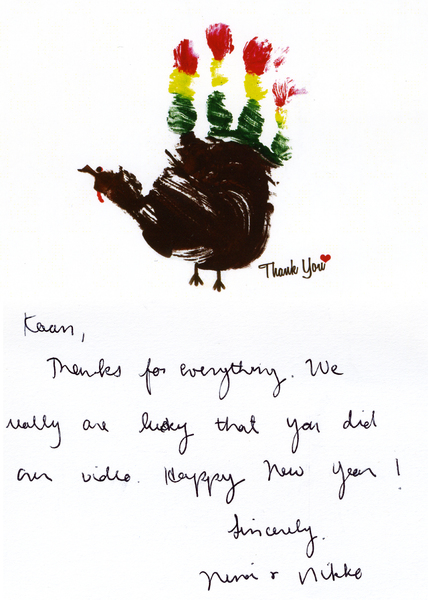 Thank You
Kaan,
Thanks for everything. We
really are lucky that you did
our video. Happy New Year!
Sincerely,
& Nikko